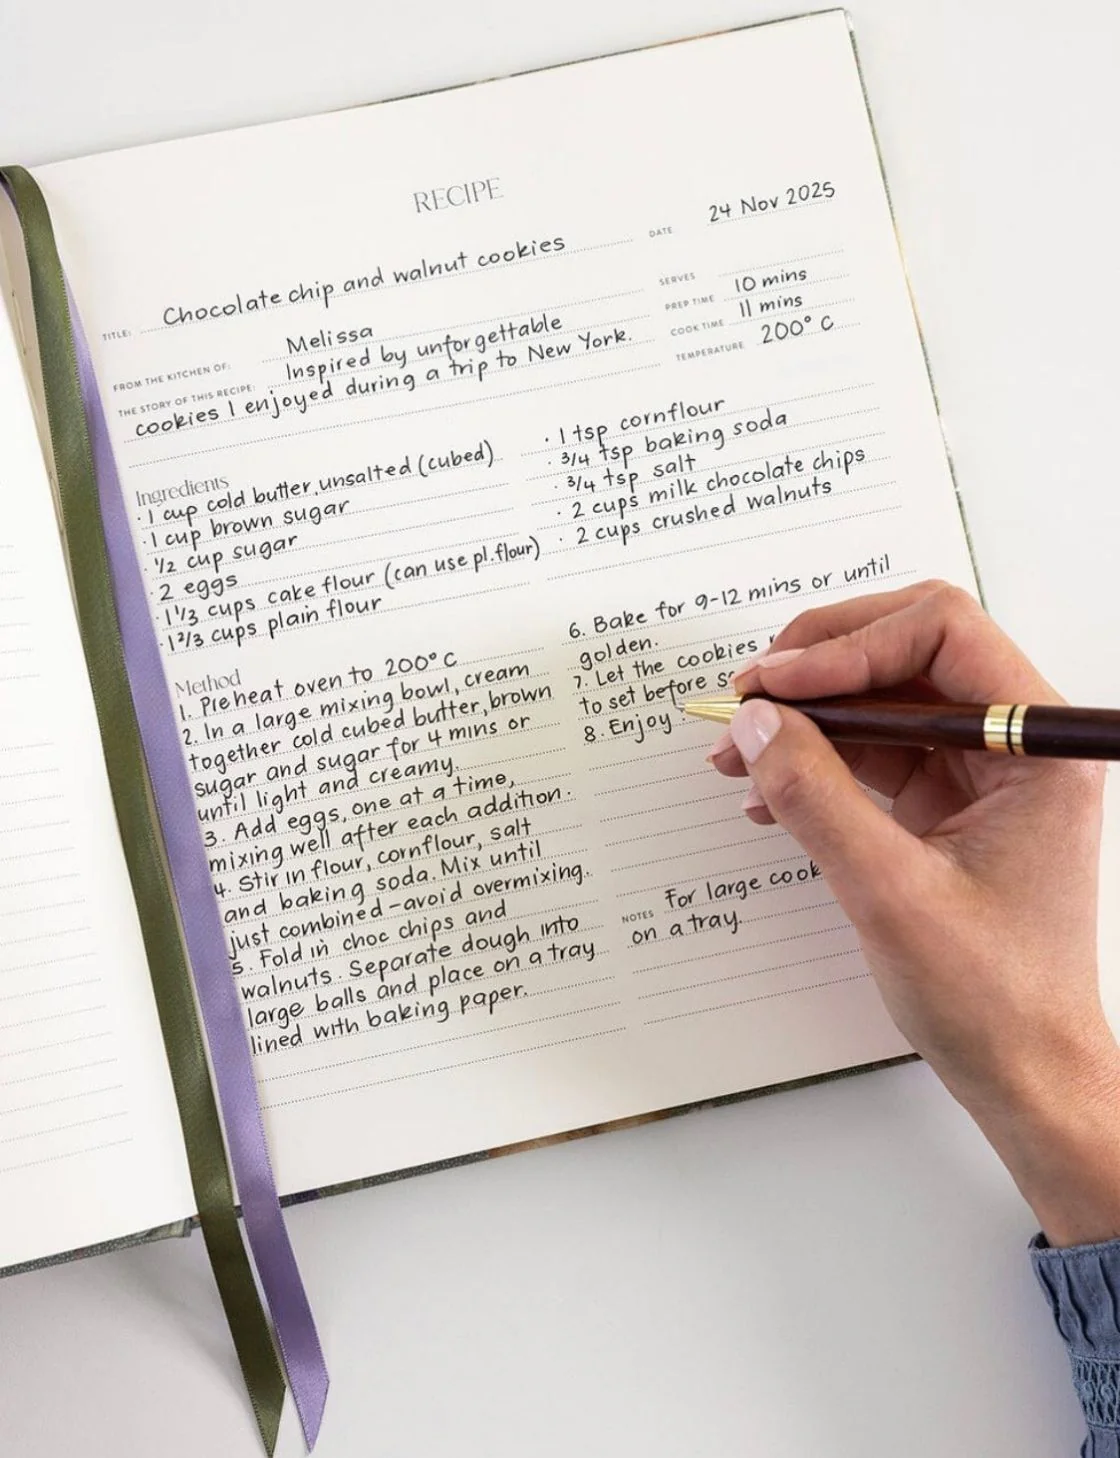 RECIPE
DATE 24 Nov 2025
TITLE: Chocolate chip and walnut cookies
FROM THE KITCHEN OF: Melissa
THE STORY OF THIS RECIPE: Inspired by unforgettable
cookies I enjoyed during a trip to New York.
SERVES
PREP TIME 10 mins
COOK TIME 11 mins
TEMPERATURE 200° C
Ingredients
· 1 cup cold butter, unsalted (cubed)
· 1 cup brown sugar
· 1/2 cup sugar
· 2 eggs
· 1 1/3 cups cake flour (can use pl.flour)
· 1 2/3 cups plain flour
· 1 tsp cornflour
· 3/4 tsp baking soda
· 3/4 tsp salt
· 2 cups milk chocolate chips
· 2 cups crushed walnuts
Method
1. Preheat oven to 200° C
2. In a large mixing bowl, cream
together cold cubed butter, brown
sugar and sugar for 4 mins or
until light and creamy.
3. Add eggs, one at a time,
mixing well after each addition.
4. Stir in flour, cornflour, salt
and baking soda. Mix until
just combined - avoid overmixing.
5. Fold in choc chips and
walnuts. Separate dough into
large balls and place on a tray
lined with baking paper.
6. Bake for 9-12 mins or until
golden.
7. Let the cookies
to set before
8. Enjoy
NOTES For large
on a tray.